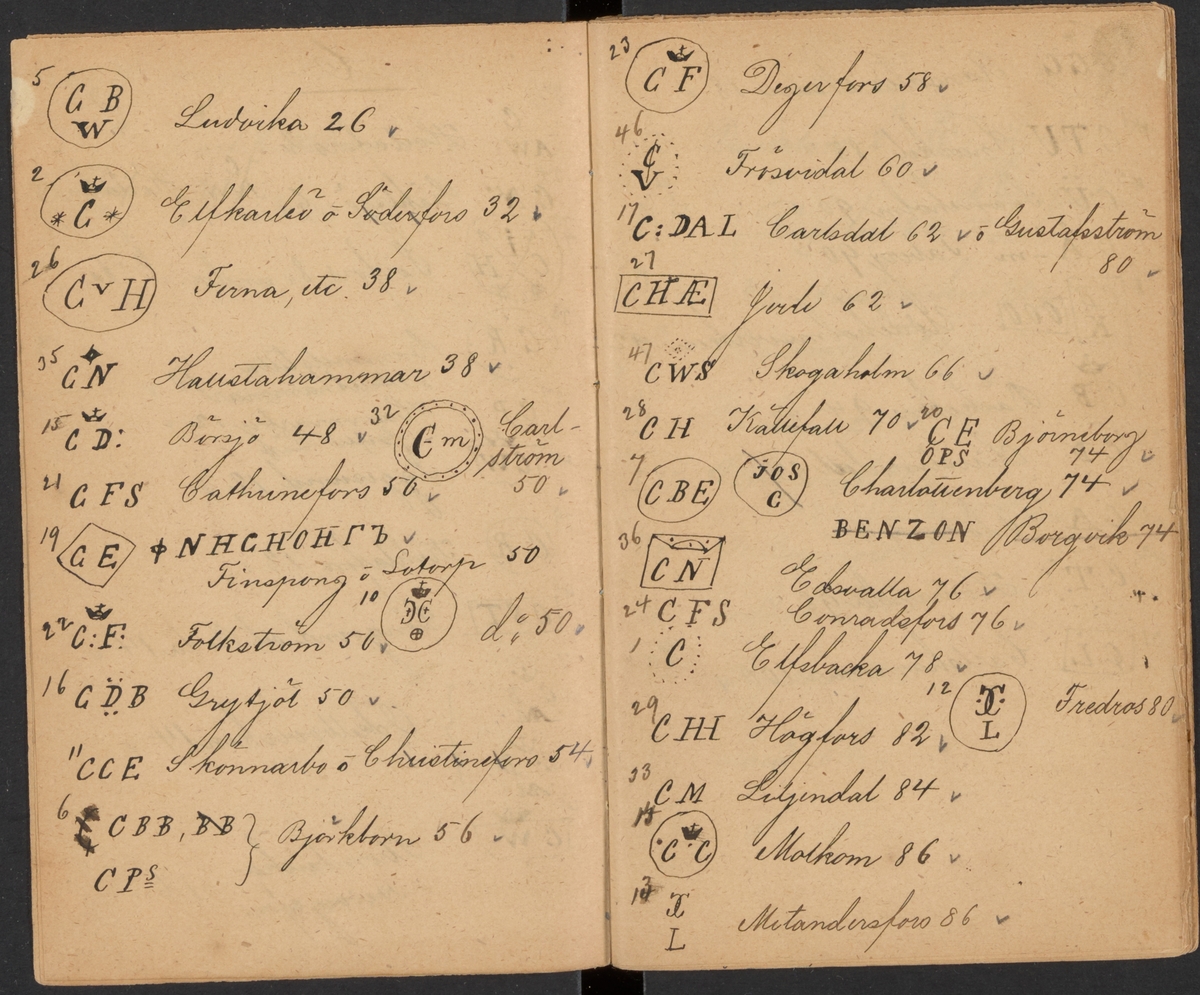 5 C B
W Ludvika 26 ✓
2 * C * Elfkarleö o Söderfors 32 ✓
26 C v H Ferna, etc. 38 ✓
35 C N Haustahammar 38 ✓
15 C D: Börsjö 48 ✓ 32 C m Carl-
ström
21 C F S Cathrinefors 50 ✓ 50 ✓
19 C E ФNНСНОНГЪ ✓
Finspong o Lotorp 50
22 C:F: Folkström 50 ✓ 10 ƆC ⊕ do 50 ✓
16 C D B Grytjöl 50 ✓
11 C C E Skönnarbo o Christinefors 54 ✓
6 C B B, BB } Björkborn 56 ✓
C P S
23 C F Degerfors 58 ✓
46 C
V Frösvidal 60 ✓
17 C:DAL Carlsdal 62 ✓ o Gustafsström
80 ✓
27 C H Æ Jerle 62 ✓
47 C W S Skogaholm 66 ✓
28 C H Källefall 70 ✓ 20 C E
OPS Björneborg
74 ✓
7 C B E JOS
C Charlottenberg 74 ✓
BENZON Borgvik 74
36 C N Edsvalla 76 ✓
24 C F S Conradsfors 76 ✓
1 C Elfsbacka 78 ✓
12 ƆC
L Fredros 80 ✓
29 C HI Högfors 82 ✓
33 C M Liljendal 84 ✓
14 C C Molkom 86 ✓
13 ƆC
L Mitandersfors 86 ✓